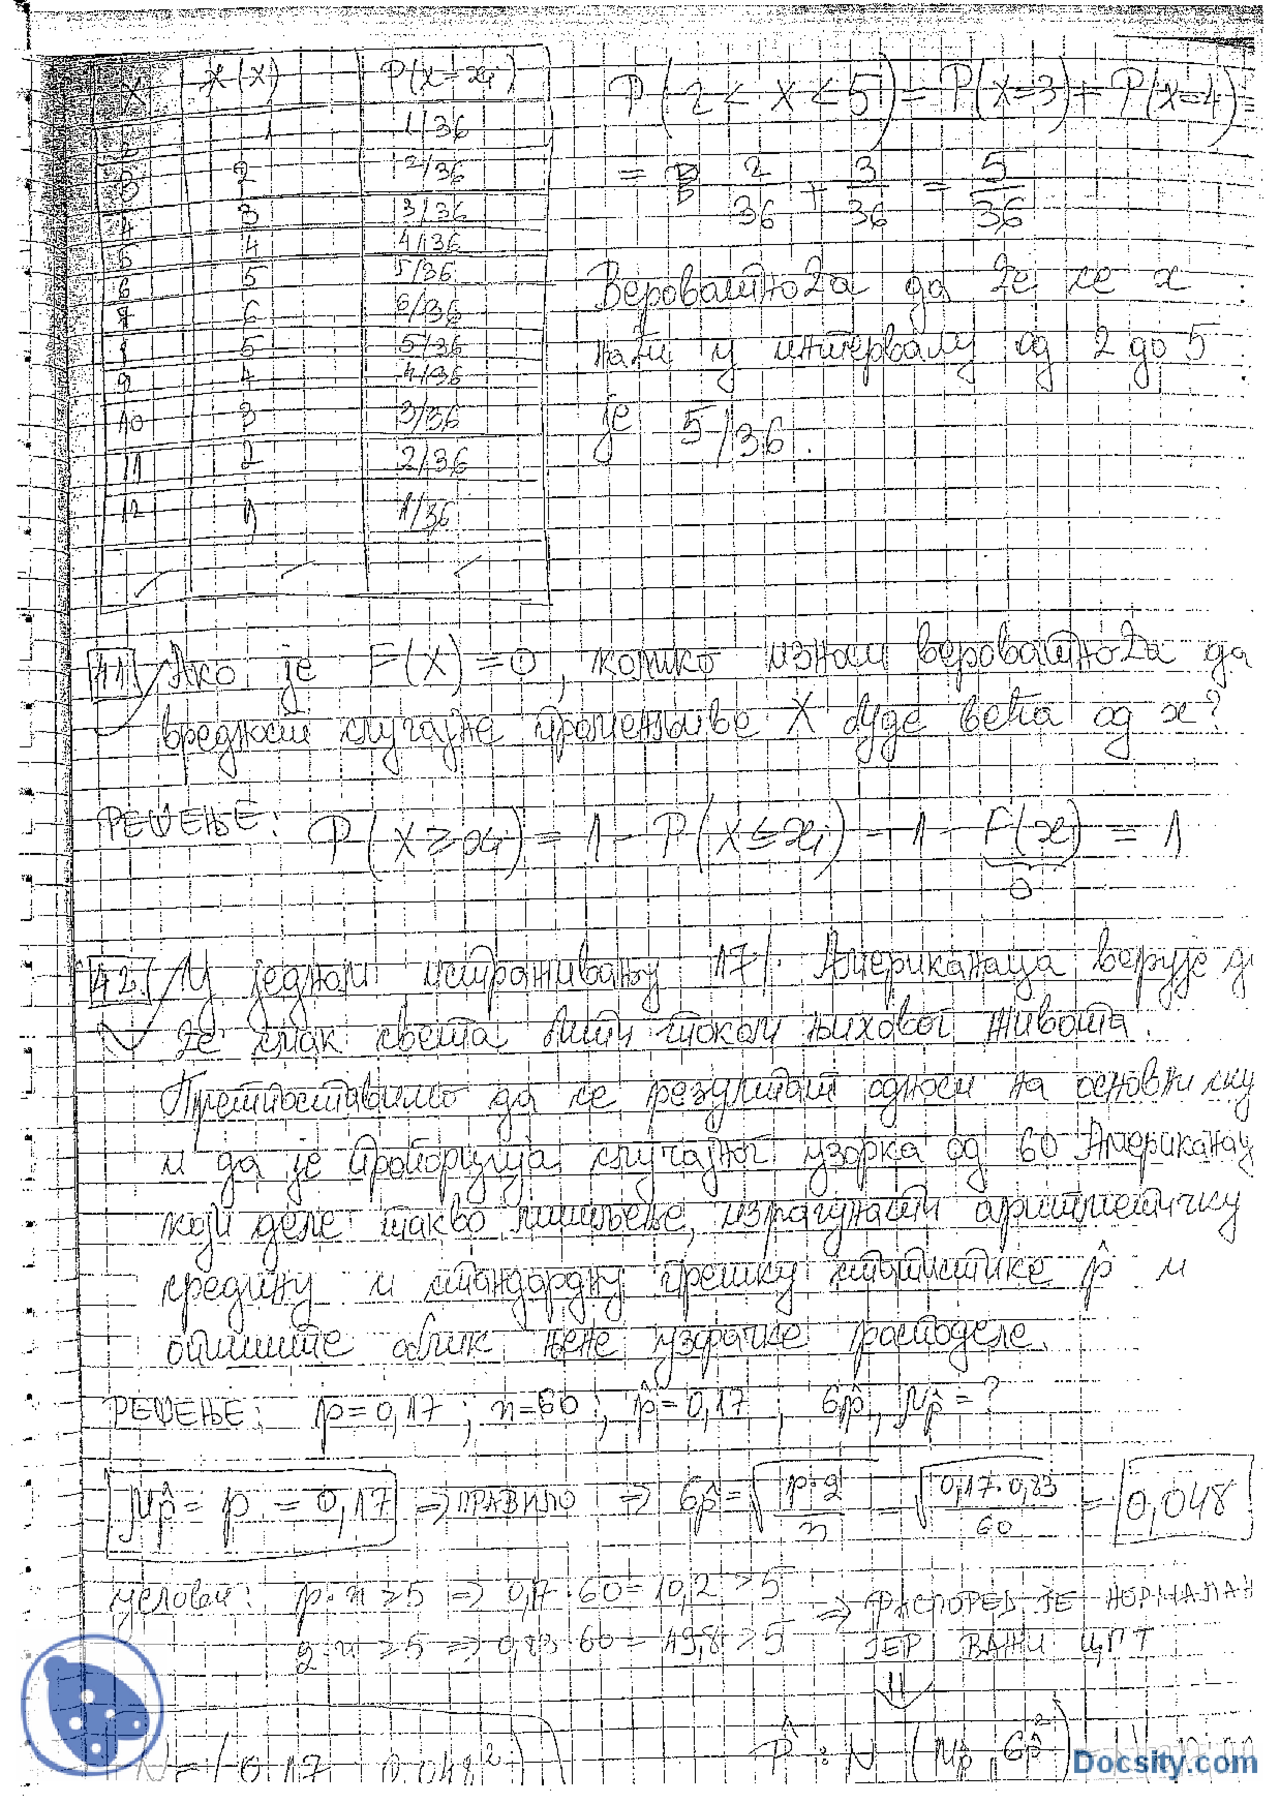 X | f(X) | P(X=xi)
2 | 1 | 1/36
3 | 2 | 2/36
4 | 3 | 3/36
5 | 4 | 4/36
6 | 5 | 5/36
7 | 6 | 6/36
8 | 5 | 5/36
9 | 4 | 4/36
10 | 3 | 3/36
11 | 2 | 2/36
12 | 1 | 1/36
P(2 < X < 5) = P(X=3) + P(X=4) =
= 2/36 + 3/36 = 5/36
Вероватноћа да ће се x
наћи у интервалу од 2 до 5
је 5/36.
41. Ако је F(X)=0, колико износи вероватноћа да
вредност случајне променљиве X буде већа од x?
РЕШЕЊЕ: P(X ≥ xi) = 1 - P(X ≤ xi) = 1 - F(x) = 1
0
42. У једном истраживању 17% Американаца верује да
ће смак света бити током њиховог живота.
Претпоставимо да се резултат односи на основни ску
и да је пропорција случајног узорка од 60 Американац
који деле такво мишљење, израчунати аритметичку
средину и стандардну грешку статистике p̂ и
опишите облик њене узорачке расподеле.
РЕШЕЊЕ: p=0,17 ; n=60 ; p̂=0,17 ; σp̂, μp̂=?
μp̂ = p = 0,17 ⇒ ПРАВИЛО ⇒ σp̂ = √(p·q/n) = √(0,17·0,83/60) = 0,048
услови: p·n ≥ 5 ⇒ 0,17·60 = 10,2 > 5 ⇒ РАСПОРЕД ЈЕ НОРМАЛАН
q·n ≥ 5 ⇒ 0,83·60 = 49,8 > 5 ЈЕР ВАЖИ ЦГТ
N = (0,17 0,048²)
p̂ : N (μp̂, σp̂²)
Docsity.com